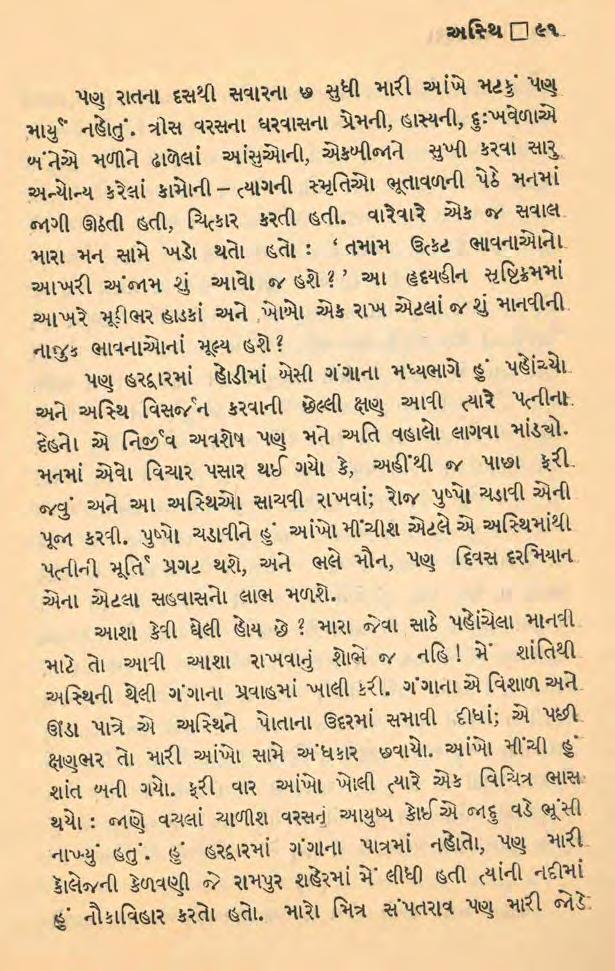 અસ્થિ □ ૯૧
પણ રાતના દસથી સવારના ૭ સુધી મારી આંખે મટકું પણ
માર્યું નહોતું. ત્રીસ વરસના ઘરવાસના પ્રેમની, હાસ્યની, દુઃખવેળાએ
બંનેએ મળીને ઢાળેલાં આંસુઓની, એકબીજાને સુખી કરવા સારુ
અન્યોન્ય કરેલાં કામોની – ત્યાગની સ્મૃતિઓ ભૂતાવળની પેઠે મનમાં
જાગી ઊઠતી હતી, ચિત્કાર કરતી હતી. વારેવારે એક જ સવાલ
મારા મન સામે ખડો થતો હતો : ‘તમામ ઉત્કટ ભાવનાઓનો
આખરી અંજામ શું આવો જ હશે?’ આ હૃદયહીન સૃષ્ટિક્રમમાં
આખરે મૂઠીભર હાડકાં અને ખોબો એક રાખ એટલાં જ શું માનવીની
નાજુક ભાવનાઓનાં મૂલ્ય હશે?
પણ હરદ્વારમાં હોડીમાં બેસી ગંગાના મધ્યભાગે હું પહોંચ્યો
અને અસ્થિ વિસર્જન કરવાની છેલ્લી ક્ષણ આવી ત્યારે પત્નીના
દેહનો એ નિર્જીવ અવશેષ પણ મને અતિ વહાલો લાગવા માંડ્યો.
મનમાં એવો વિચાર પસાર થઈ ગયો કે, અહીંથી જ પાછા ફરી
જવું અને આ અસ્થિઓ સાચવી રાખવાં; રોજ પુષ્પો ચડાવી એની
પૂજા કરવી. પુષ્પો ચડાવીને હું આંખો મીંચીશ એટલે એ અસ્થિમાંથી
પત્નીની મૂર્તિ પ્રગટ થશે, અને ભલે મૌન, પણ દિવસ દરમિયાન
એના એટલા સહવાસનો લાભ મળશે.
આશા કેવી ઘેલી હોય છે? મારા જેવા સાઠે પહોંચેલા માનવી
માટે તો આવી આશા રાખવાનું શોભે જ નહિ! મેં શાંતિથી
અસ્થિની થેલી ગંગાના પ્રવાહમાં ખાલી કરી. ગંગાના એ વિશાળ અને
ઊંડા પાત્રે એ અસ્થિને પોતાના ઉદરમાં સમાવી દીધાં; એ પછી
ક્ષણભર તો મારી આંખો સામે અંધકાર છવાયો. આંખો મીંચી હું
શાંત બની ગયો. ફરી વાર આંખો ખોલી ત્યારે એક વિચિત્ર ભાસ
થયો : જાણે વચલાં ચાળીશ વરસનું આયુષ્ય કોઈએ જાદુ વડે ભૂંસી
નાખ્યું હતું. હું હરદ્વારમાં ગંગાના પાત્રમાં નહોતો, પણ મારી
કૉલેજની કેળવણી જે રામપુર શહેરમાં મેં લીધી હતી ત્યાંની નદીમાં
હું નૌકાવિહાર કરતો હતો. મારો મિત્ર સંપતરાવ પણ મારી જોડે